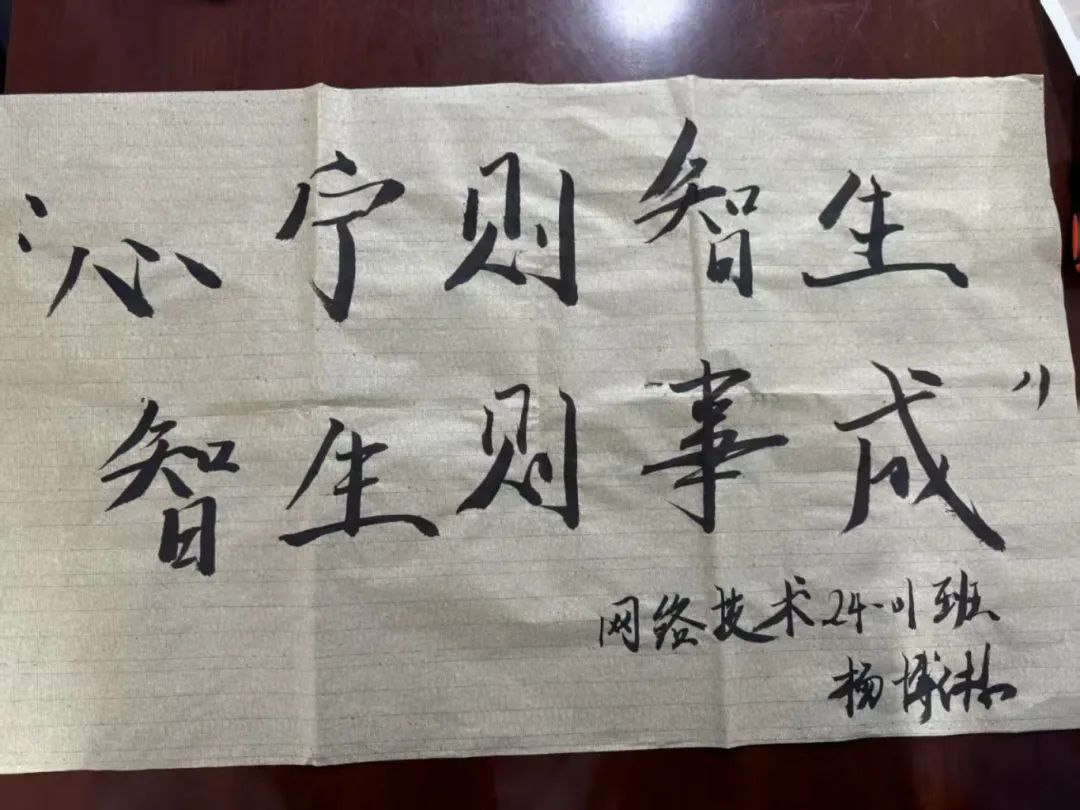 “心宁则智生
智生则事成”
网络技术24-01班
杨博